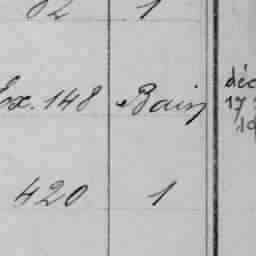 62 1
Ex. 148 Bain
déc
17
19
420 1